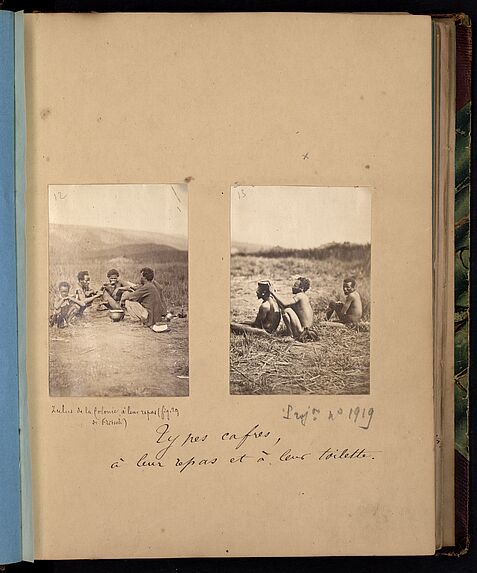 12
13
Zulus de la Colonie à leur repas (fig. 19
de Fritsch)
Proj.on no 1919
Types cafres,
à leur repas et à leur toilette.